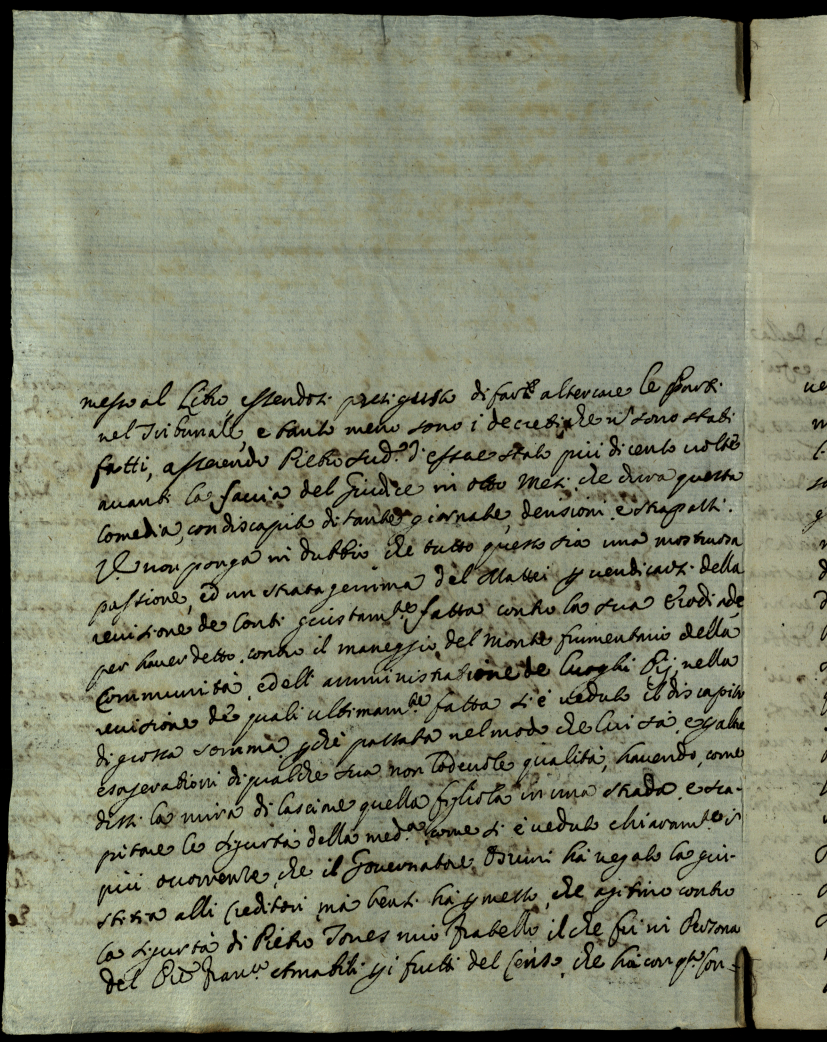 messo al Libro, essendosi preso gusto di farle altercare le Parti
nel Tribunale, e tanto meno sono i decreti che vi sono stati
fatti, asserendo Pietro sud.º d'essere stato più di cento volte
avanti la faccia del Giudice in otto Mesi che dura questa
Comedia, con discapito di tante giornate, e strapazzi.
VS. non ponga in dubbio che tutto questo sia una mostruosa
passione, ed un stratagemma del Mattei p vendicarsi della
revisione de Conti giustam.te fatta contro la sua Erodiade
per haver detto contro il maneggio del Monte frumentario della
Communità, e dell'amministratione de Luoghi Pij, nella
revisione de quali ultimam.te fatta si è veduto il discapito
di grossa somma p che passata nel modo che lui sà, e p altre
esagerationi di qualche sua non lodevole qualità, havendo, come
dissi la mira di lasciare quella figliola in una strada, e sca-
pitare la sigurtà della med.ma come si è veduto chiaram.te
più occorrenze, che il Governatore Orsini hà negato la giu-
stitia alli Creditori mà bensi hà p messo, che agitino contro
la sigurtà di Pietro Tones mio fratello il che fù in Persona
del Franc.º Amabili p i frutti del Censo, che hà con q.ta Con-